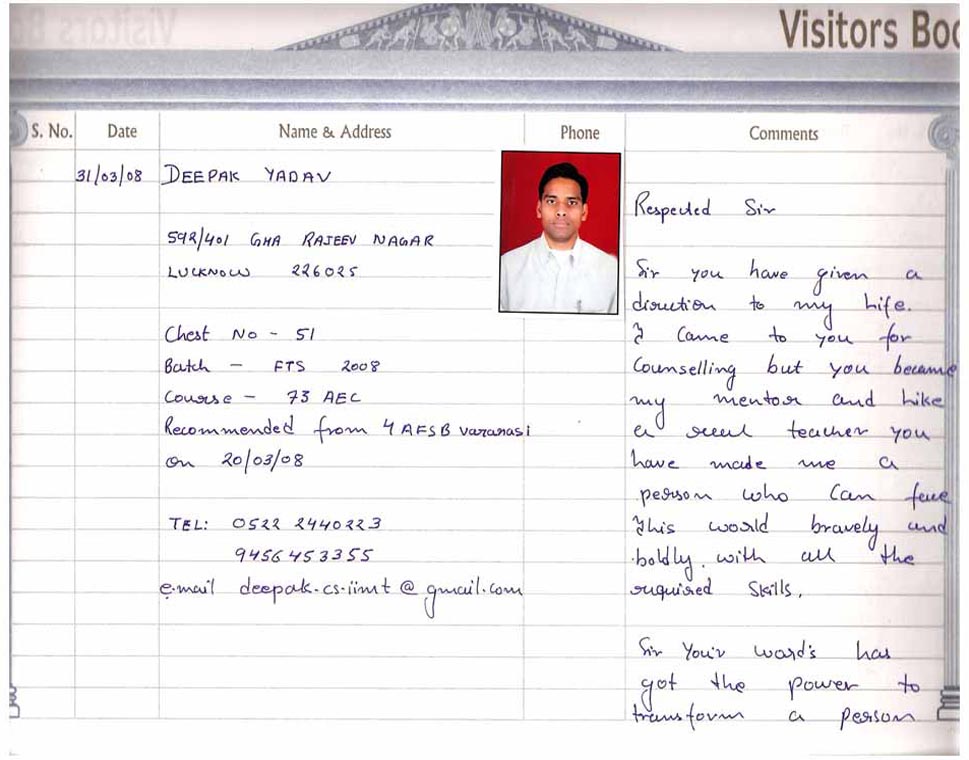 Visitors Boo
S. No. Date Name & Address Phone Comments
31/03/08 DEEPAK YADAV
592/401 GHA RAJEEV NAGAR
LUCKNOW 226025
Chest No - 51
Batch - FTS 2008
Course - 73 AEC
Recommended from 4 AFSB varanasi
on 20/03/08
TEL: 0522 2440223
9456453355
e-mail deepak-cs-iimt@gmail.com
Respected Sir
Sir you have given a
direction to my life.
I came to you for
Counselling but you became
my mentor and like
a real teacher you
have made me a
person who can face
this world bravely and
boldly. with all the
required skills.
Sir Your word's has
got the power to
transform a person